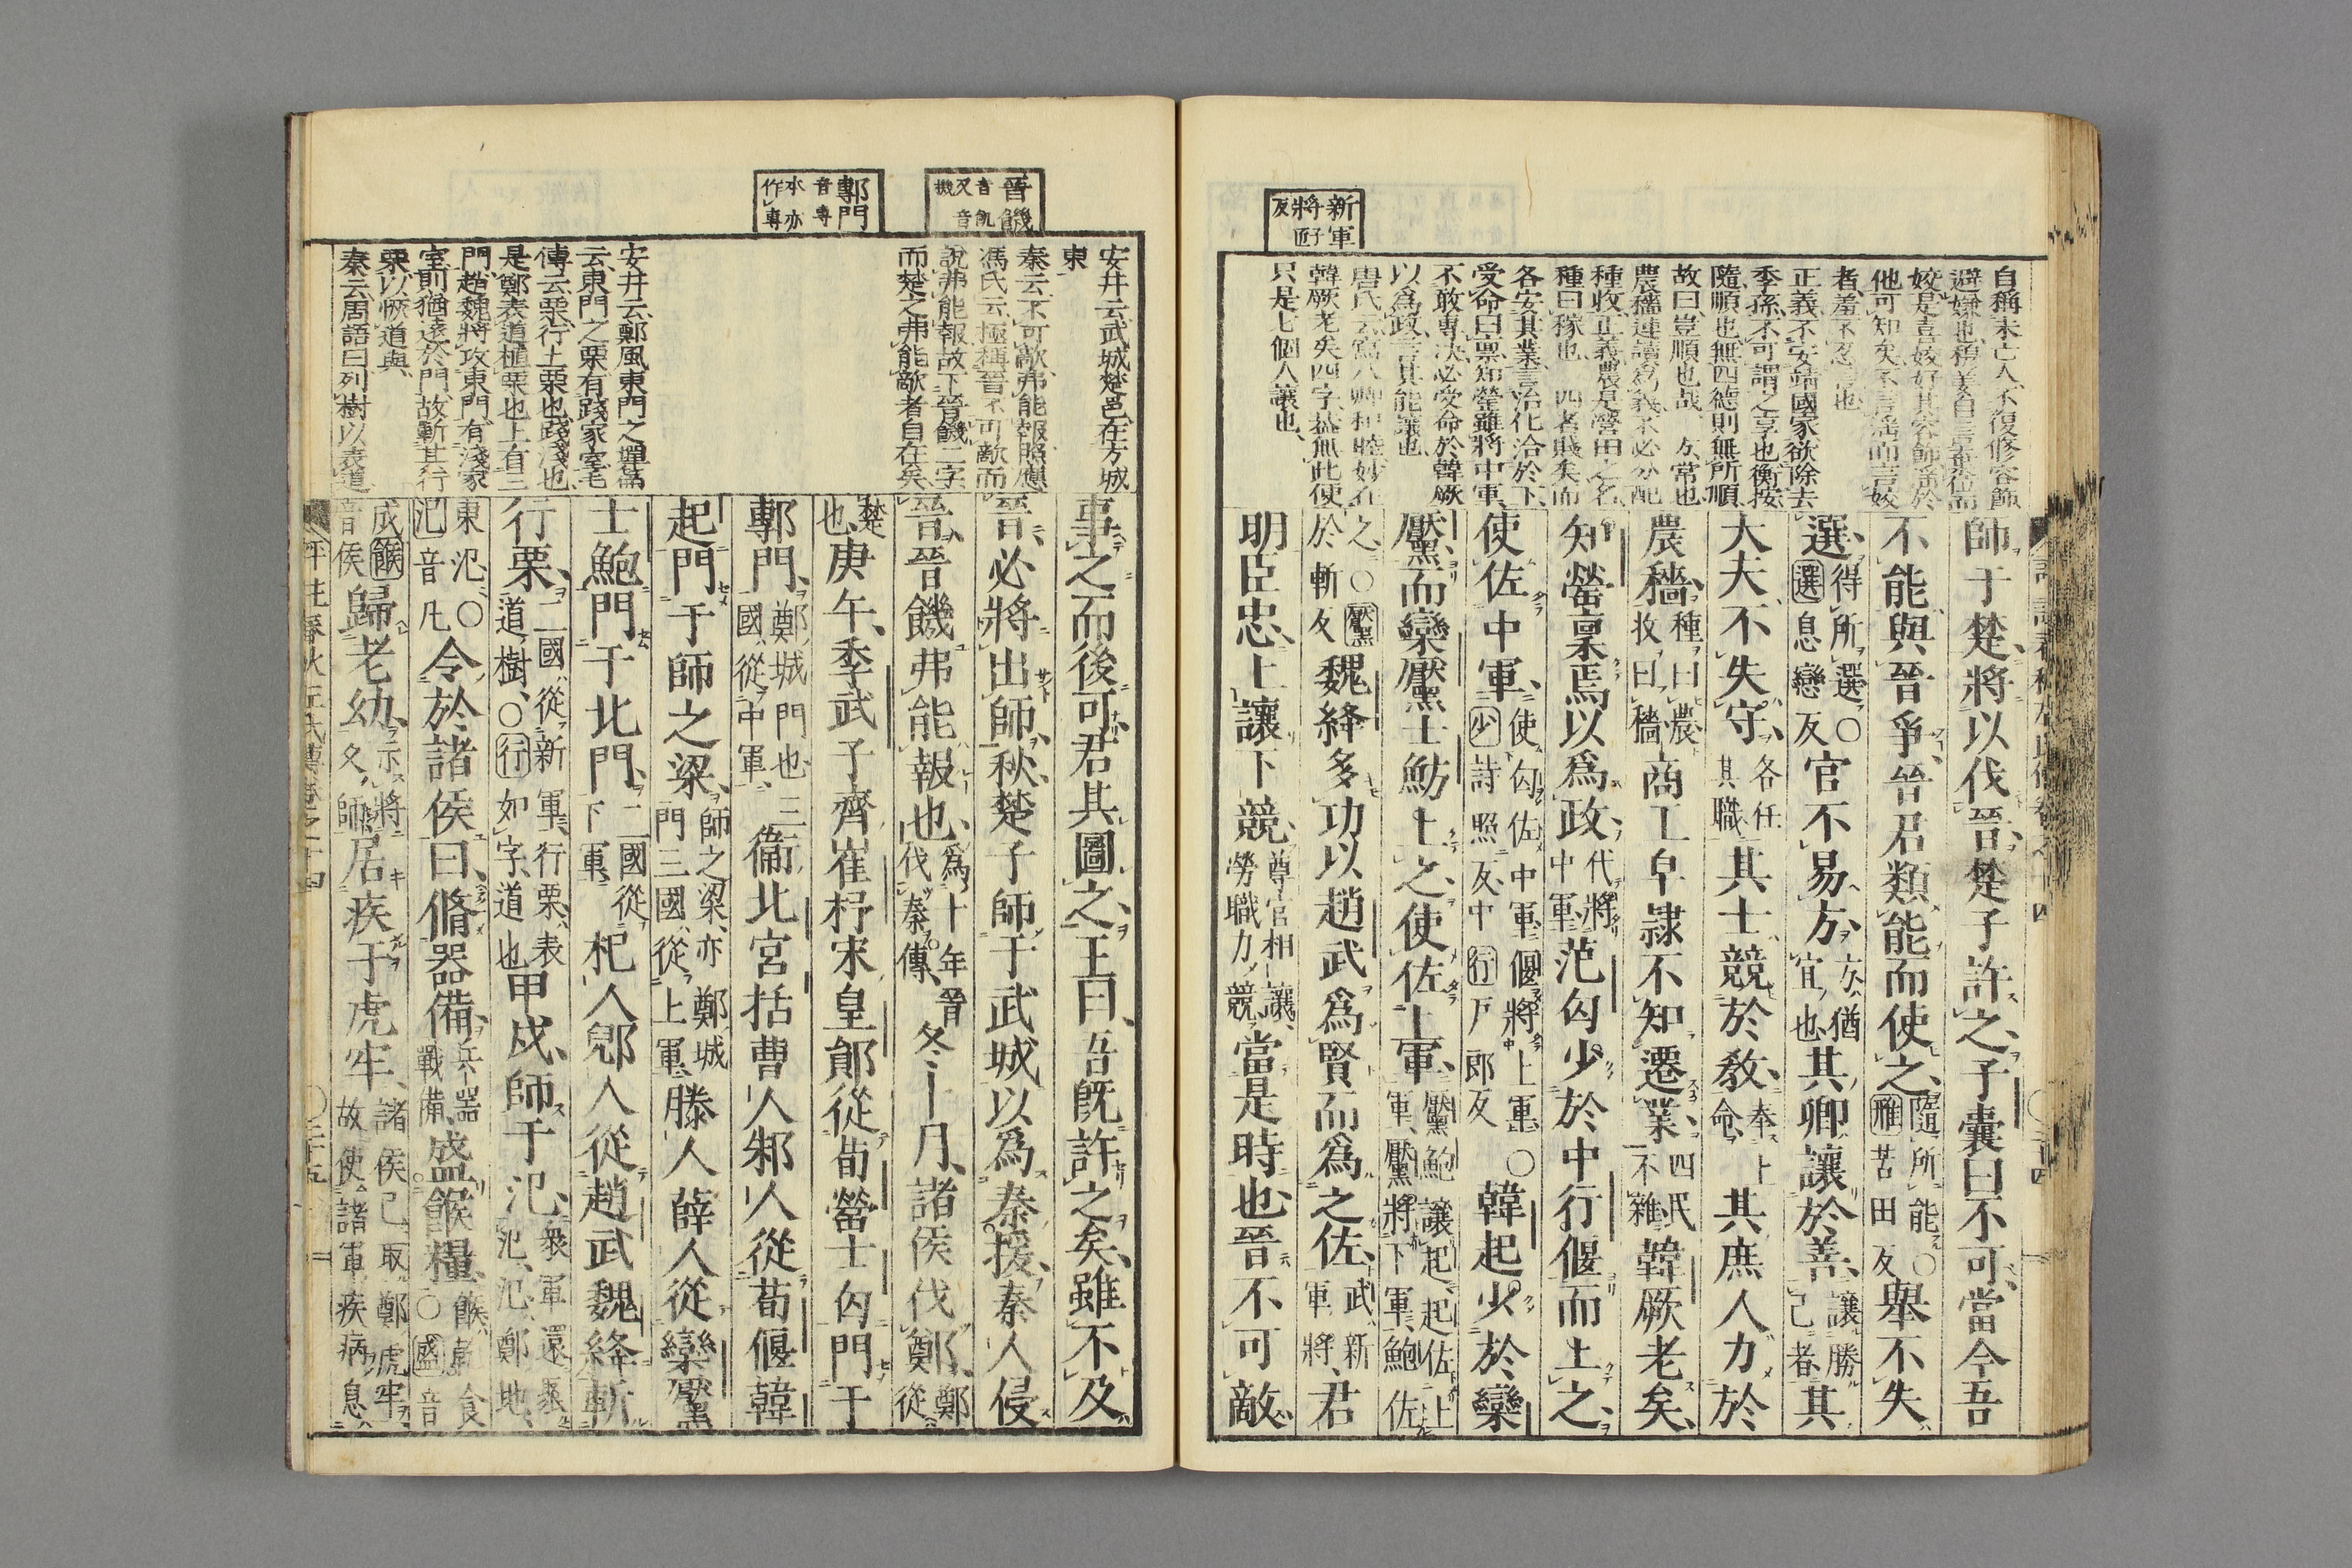 新軍
將子
匠
反
自稱未亡人不復修容飾
避嫌也穆姜自言棄位而
姣是言姣好其容飾
他可知矣不言淫而言姣
者羞不忍言也
正義不安靖國家欲除去
季孫不可謂之享也衡按
隨順也無四德則無所順
故曰豈順也哉
農穡連讀爲義不必分配
種收正義農是營田之名
種曰稼也四者賤矣而
各安其業言治化洽於下
受命曰稟知罃雖將中軍
不敢專決必受命於韓厥
以爲政言其能讓也
韓厥老矣四字無此便
只是七個人讓也
師于楚將以伐晉楚子許之子囊曰不可當今吾
不能與晉爭晉君類能而使之隨所能○雁苦田反舉不失
選得所選○選息戀反官不易方方猶宜也其卿讓於善讓勝己者其
大夫不失守各任其職其士競於敎奉上命其庶人力於
農穡種曰農收曰穡商工皁隸不知遷業四民不雜韓厥老矣
知罃稟焉以爲政代將中軍范匄少於中行偃而上之
使佐中軍使匄佐中軍偃將上軍○少詩照反中行戸郎反韓起少於欒
黶而欒黶士魴上之使佐上軍黶魴讓起起佐上軍黶將下軍魴佐
之○黶於斬反魏絳多功以趙武爲賢而爲之佐武新軍將君
明臣忠上讓下競尊官相讓勞職力競當是時也晉不可敵
晉饑
音飢
又音
機
鄟門
音專
本亦
作專
安井云武城楚邑在方城
東
秦云不可敵弗能報照應
馮氏云極稱晉不可敵而
說弗能報故下晉饑二字
而楚之弗能敵者自在矣
安井云鄭風東門之墠篇
云東門之栗有踐家室毛
傳云栗行上栗也踐淺也
是鄭表道植栗也上有三
門趙魏將攻東門有淺家
室則猶遠於門故斬其行
栗以懨道與
秦云周語曰列樹以表道
事之而後可君其圖之王曰吾旣許之矣雖不及
晉必將出師秋楚子師于武城以爲秦援秦人侵
晉晉饑弗能報也爲十年晉伐秦傳冬十月諸侯伐鄭鄭從
楚也庚午季武子齊崔杼宋皇鄖從荀罃士匄門于
鄟門鄭城門也三國從中軍衞北宮括曹人邾人從荀偃韓
起門于師之梁師之梁亦鄭城門三國從上軍滕人薛人從欒黶
士魴門于北門二國從下軍杞人郳人從趙武魏絳斬
行栗二國從新軍行栗表道樹○行如字道也甲戌師于氾衆軍還聚氾氾鄭地
東氾○氾音凡令於諸侯曰脩器備兵器戰備盛餱糧餱乾食○盛音
成餱音侯歸老幼示將久師居疾于虎牢諸侯已取鄭虎牢故使諸軍疾病息